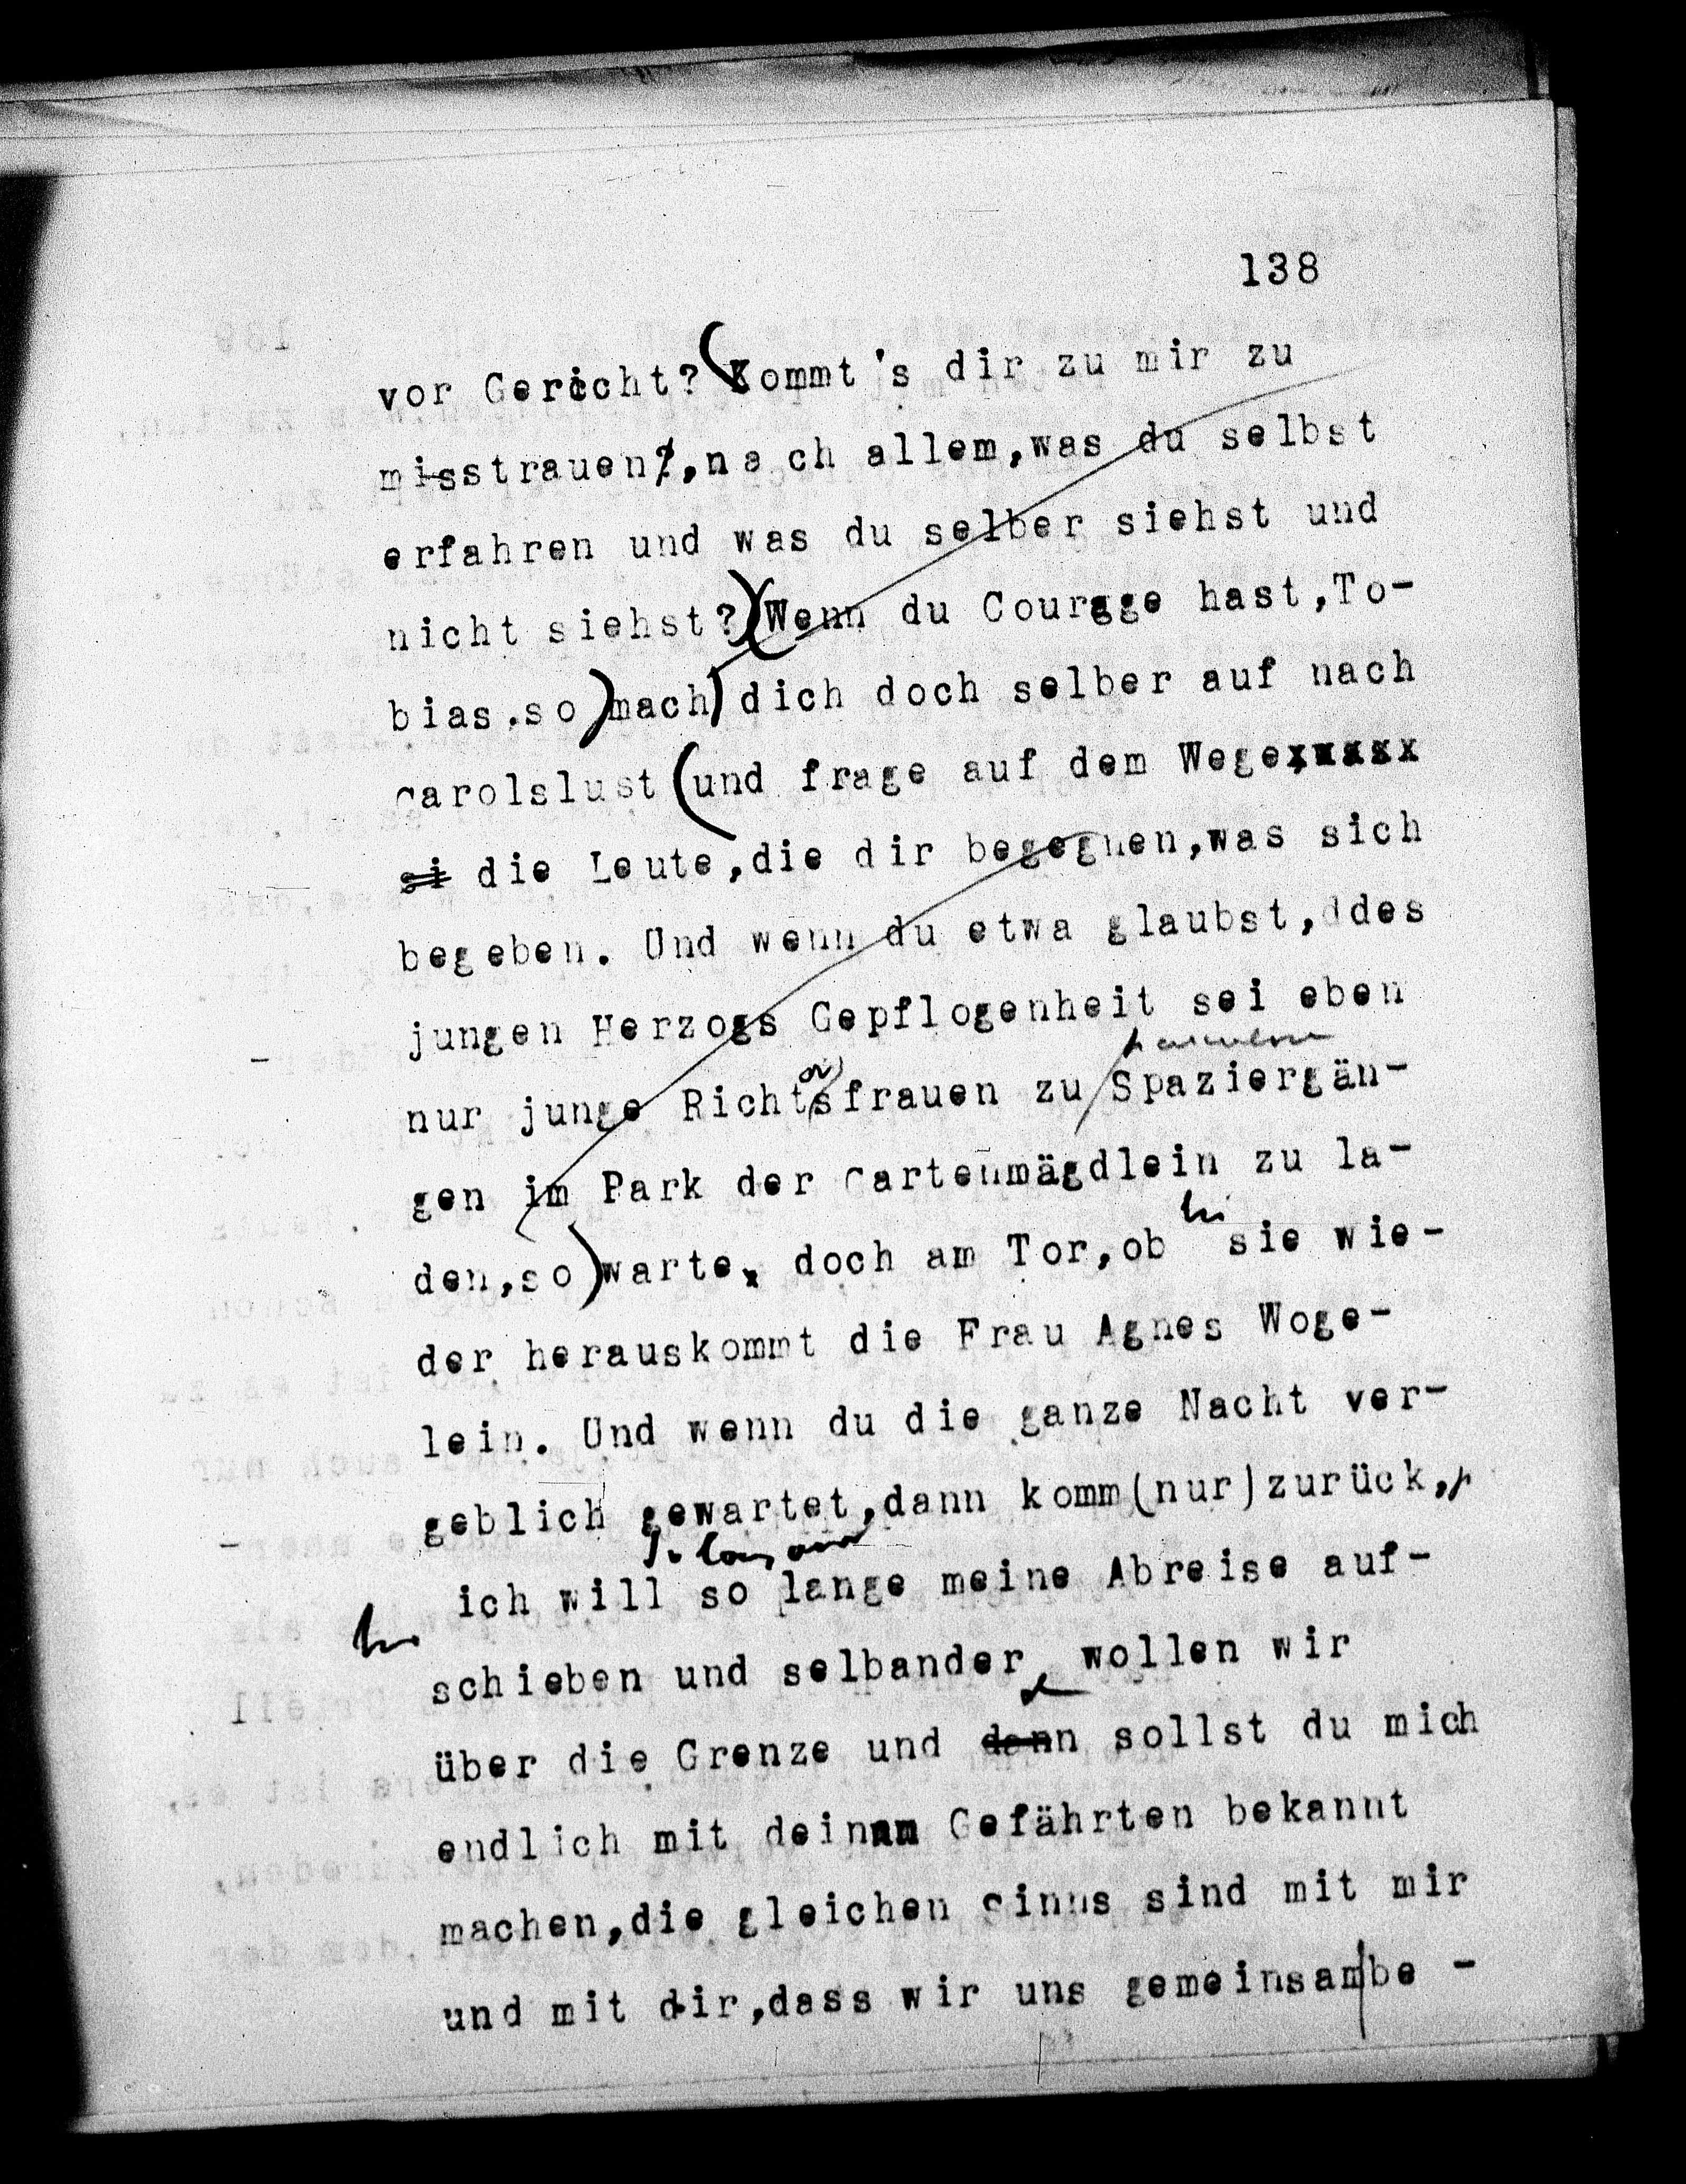 138
vor Gericht? (Kommt's dir zu mir zu
misstrauen?,nach allem,was du selbst
erfahren und was du selber siehst und
nicht siehst?)(Wenn du Courage hast,To-
bias.so)mach) dich doch selber auf nach
Carolslust (und frage auf dem Wege
si die Leute,die dir begegnen,was sich
begeben. Und wenn du etwa glaubst,ddes
jungen Herzogs Gepflogenheit sei eben
nur junge Richtsfrauen zu Spaziergän-
gen im Park der Gartenmägdlein zu la-
den,so)warte, doch am Tor,ob sie wie-
der herauskommt die Frau Agnes Woge-
lein. Und wenn du die ganze Nacht ver-
geblich gewartet,dann komm(nur)zurück,
ich will so lange meine Abreise auf-
schieben und selbander wollen wir
über die Grenze und dann sollst du mich
endlich mit deinen Gefährten bekannt
machen,die gleichen Sinns sind mit mir
und mit dir,dass wir uns gemeinsam be -